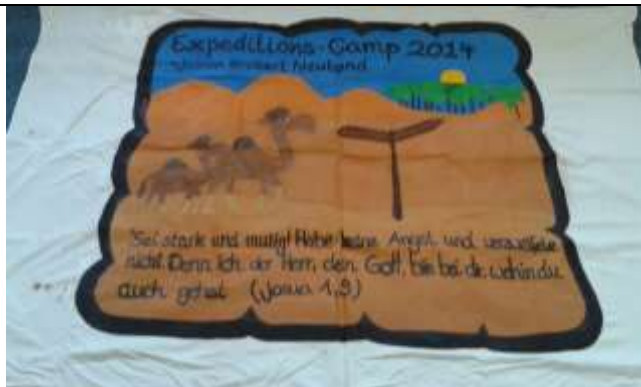 Expeditions-Camp 2014
Josua erobert Neuland
"Sei stark und mutig! Habe keine Angst und verzweifele
nicht. Denn Ich, der Herr, dein Gott, bin bei dir, wohin du
auch gehst (Josua 1,9)